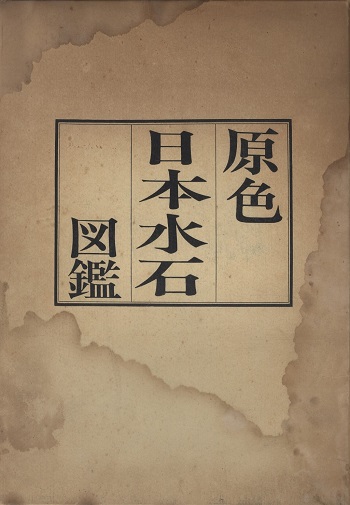 原色
日本水石
図鑑